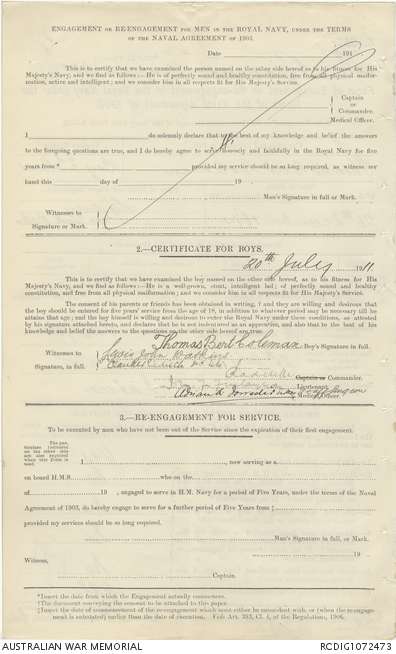 ENGAGEMENT OR RE-ENGAGEMENT FOR MEN IN THE ROYAL NAVY, UNDER THE TERMS
OF THE NAVAL AGREEMENT OF 1903.
Date 191
This is to certify that we have examined the person named on the other side hereof as to his fitness for His
Majesty's Navy, and we find as follows:—He is of perfectly sound and healthy constitution, free from all physical malfor-
mation, active and intelligent; and we consider him in all respects fit for His Majesty's Service.
Captain
or
Commander.
Medical Officer.
I do solemnly declare that to the best of my knowledge and belief the answers
to the foregoing questions are true, and I do hereby agree to serve honestly and faithfully in the Royal Navy for five
years from* provided my service should be so long required, as witness my
hand this day of 19 .
Man's Signature in full or Mark.
Witnesses to
Signature or Mark.
2.—CERTIFICATE FOR BOYS.
20th July 1911
This is to certify that we have examined the boy named on the other side hereof, as to his fitness for His
Majesty's Navy, and we find as follows:—He is a well-grown, stout, intelligent lad; of perfectly sound and healthy
constitution, and free from all physical malformation; and we consider him in all respects fit for His Majesty's Service.
The consent of his parents or friends has been obtained in writing, † and they are willing and desirous that
the boy should be entered for five years' service from the age of 18, in addition to whatever period may be necessary till he
attains that age; and the boy himself is willing and desirous to enter the Royal Navy under these conditions, as attested
by his signature attached hereto, and declares that he is not indentured as an apprentice, and also that to the best of his
knowledge and belief the answers to the questions on the other side hereof are true.
Thomas Bert Coleman Boy's Signature in full.
Witnesses to
Signature, in full. John Watkins
Captain or Commander.
Lieutenant
Medical Officer.
3.—RE-ENGAGEMENT FOR SERVICE.
To be executed by men who have not been out of the Service since the expiration of their first engagement.
I , now serving as a
on board H.M.S. who on the
of 19 , engaged to serve in H.M. Navy for a period of Five Years, under the terms of the Naval
Agreement of 1903, do hereby engage to serve for a further period of Five Years from ‡
provided my services should be so long required.
Man's Signature in full, or Mark.
19
Witness,
Captain.
*Insert the date from which the Engagement actually commences.
†The document conveying the consent to be attached to this paper.
‡Insert the date of commencement of the re-engagement
AUSTRALIAN WAR MEMORIAL
RCDIG1072473